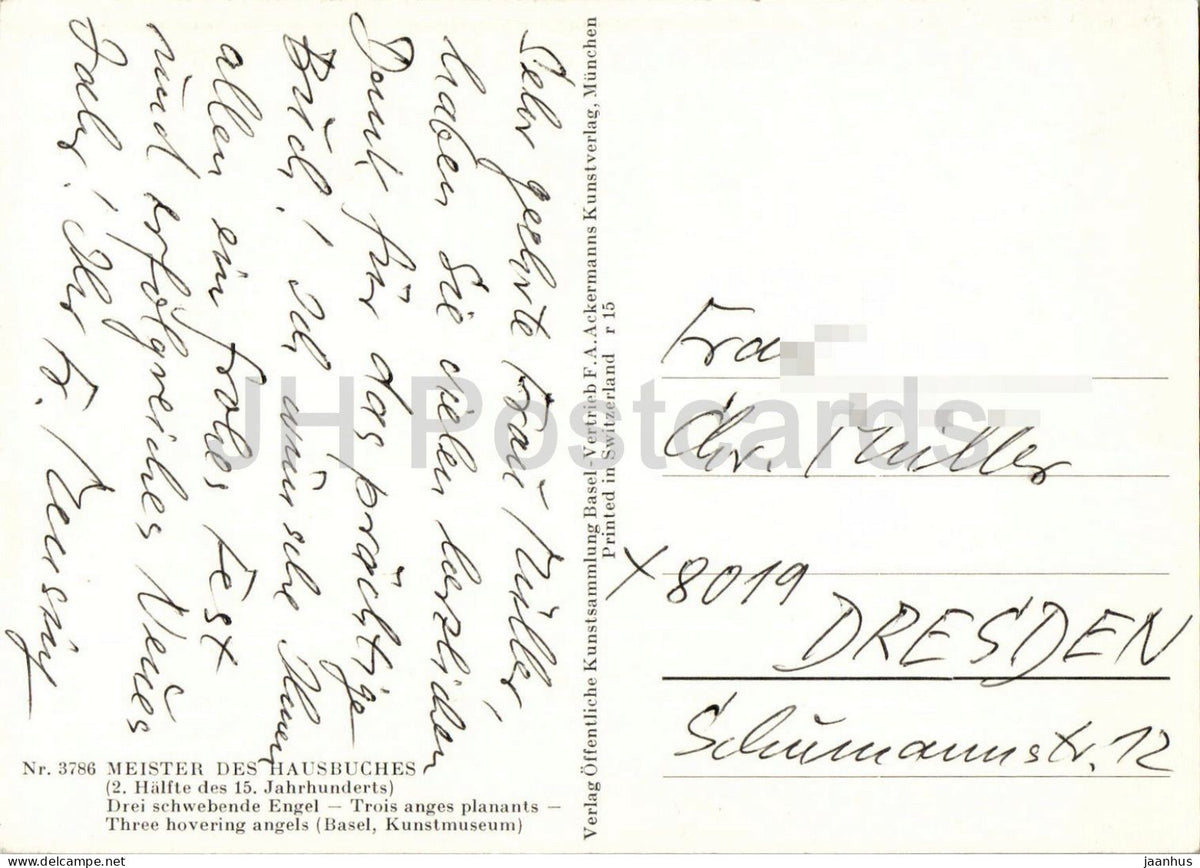 Sehr geehrte Frau Müller,
haben Sie vielen herzlichen
Dank für das prächtige
Buch! Ich wünsche Ihnen
allen ein frohes Fest
und erfolgreiches Neues
Jahr! Ihr
Verlag Öffentliche Kunstsammlung Basel - Vertrieb F. A. Ackermanns Kunstverlag, München
Printed in Switzerland r 15
Fra
Chr. Müller
X 8019
DRESDEN
Schumannstr. 12
Nr. 3786 MEISTER DES HAUSBUCHES
(2. Hälfte des 15. Jahrhunderts)
Drei schwebende Engel — Trois anges planants —
Three hovering angels (Basel, Kunstmuseum)
JH Postcards
www.delcampe.net
jaanhus